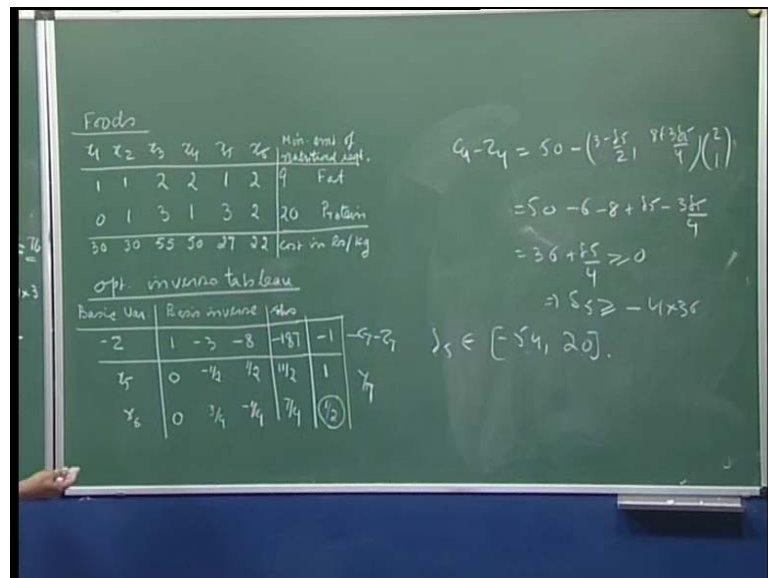 Foods
x1 x2 x3 x4 x5 x6 Min. amt of
nutritional reqt.
1 1 2 2 1 2 9 Fat
0 1 3 1 3 2 20 Protein
30 30 55 50 27 22 cost in Rs/kg
opt. inverse tableau
Basic Var Basis inverse rhs
-z 1 -3 -8 -187 -1
x5 0 -1/2 1/2 11/2 1
x6 0 3/4 -1/4 7/4 1/2
c4-z4 = 50 - (3 - δ5/2, 8+3δ5/4)(2 1)
= 50 - 6 - 8 + δ5 - 3δ5/4
= 36 + δ5/4 ≥ 0
⇒ δ5 ≥ -4×36
δ5 ∈ [-54, 20].
×3